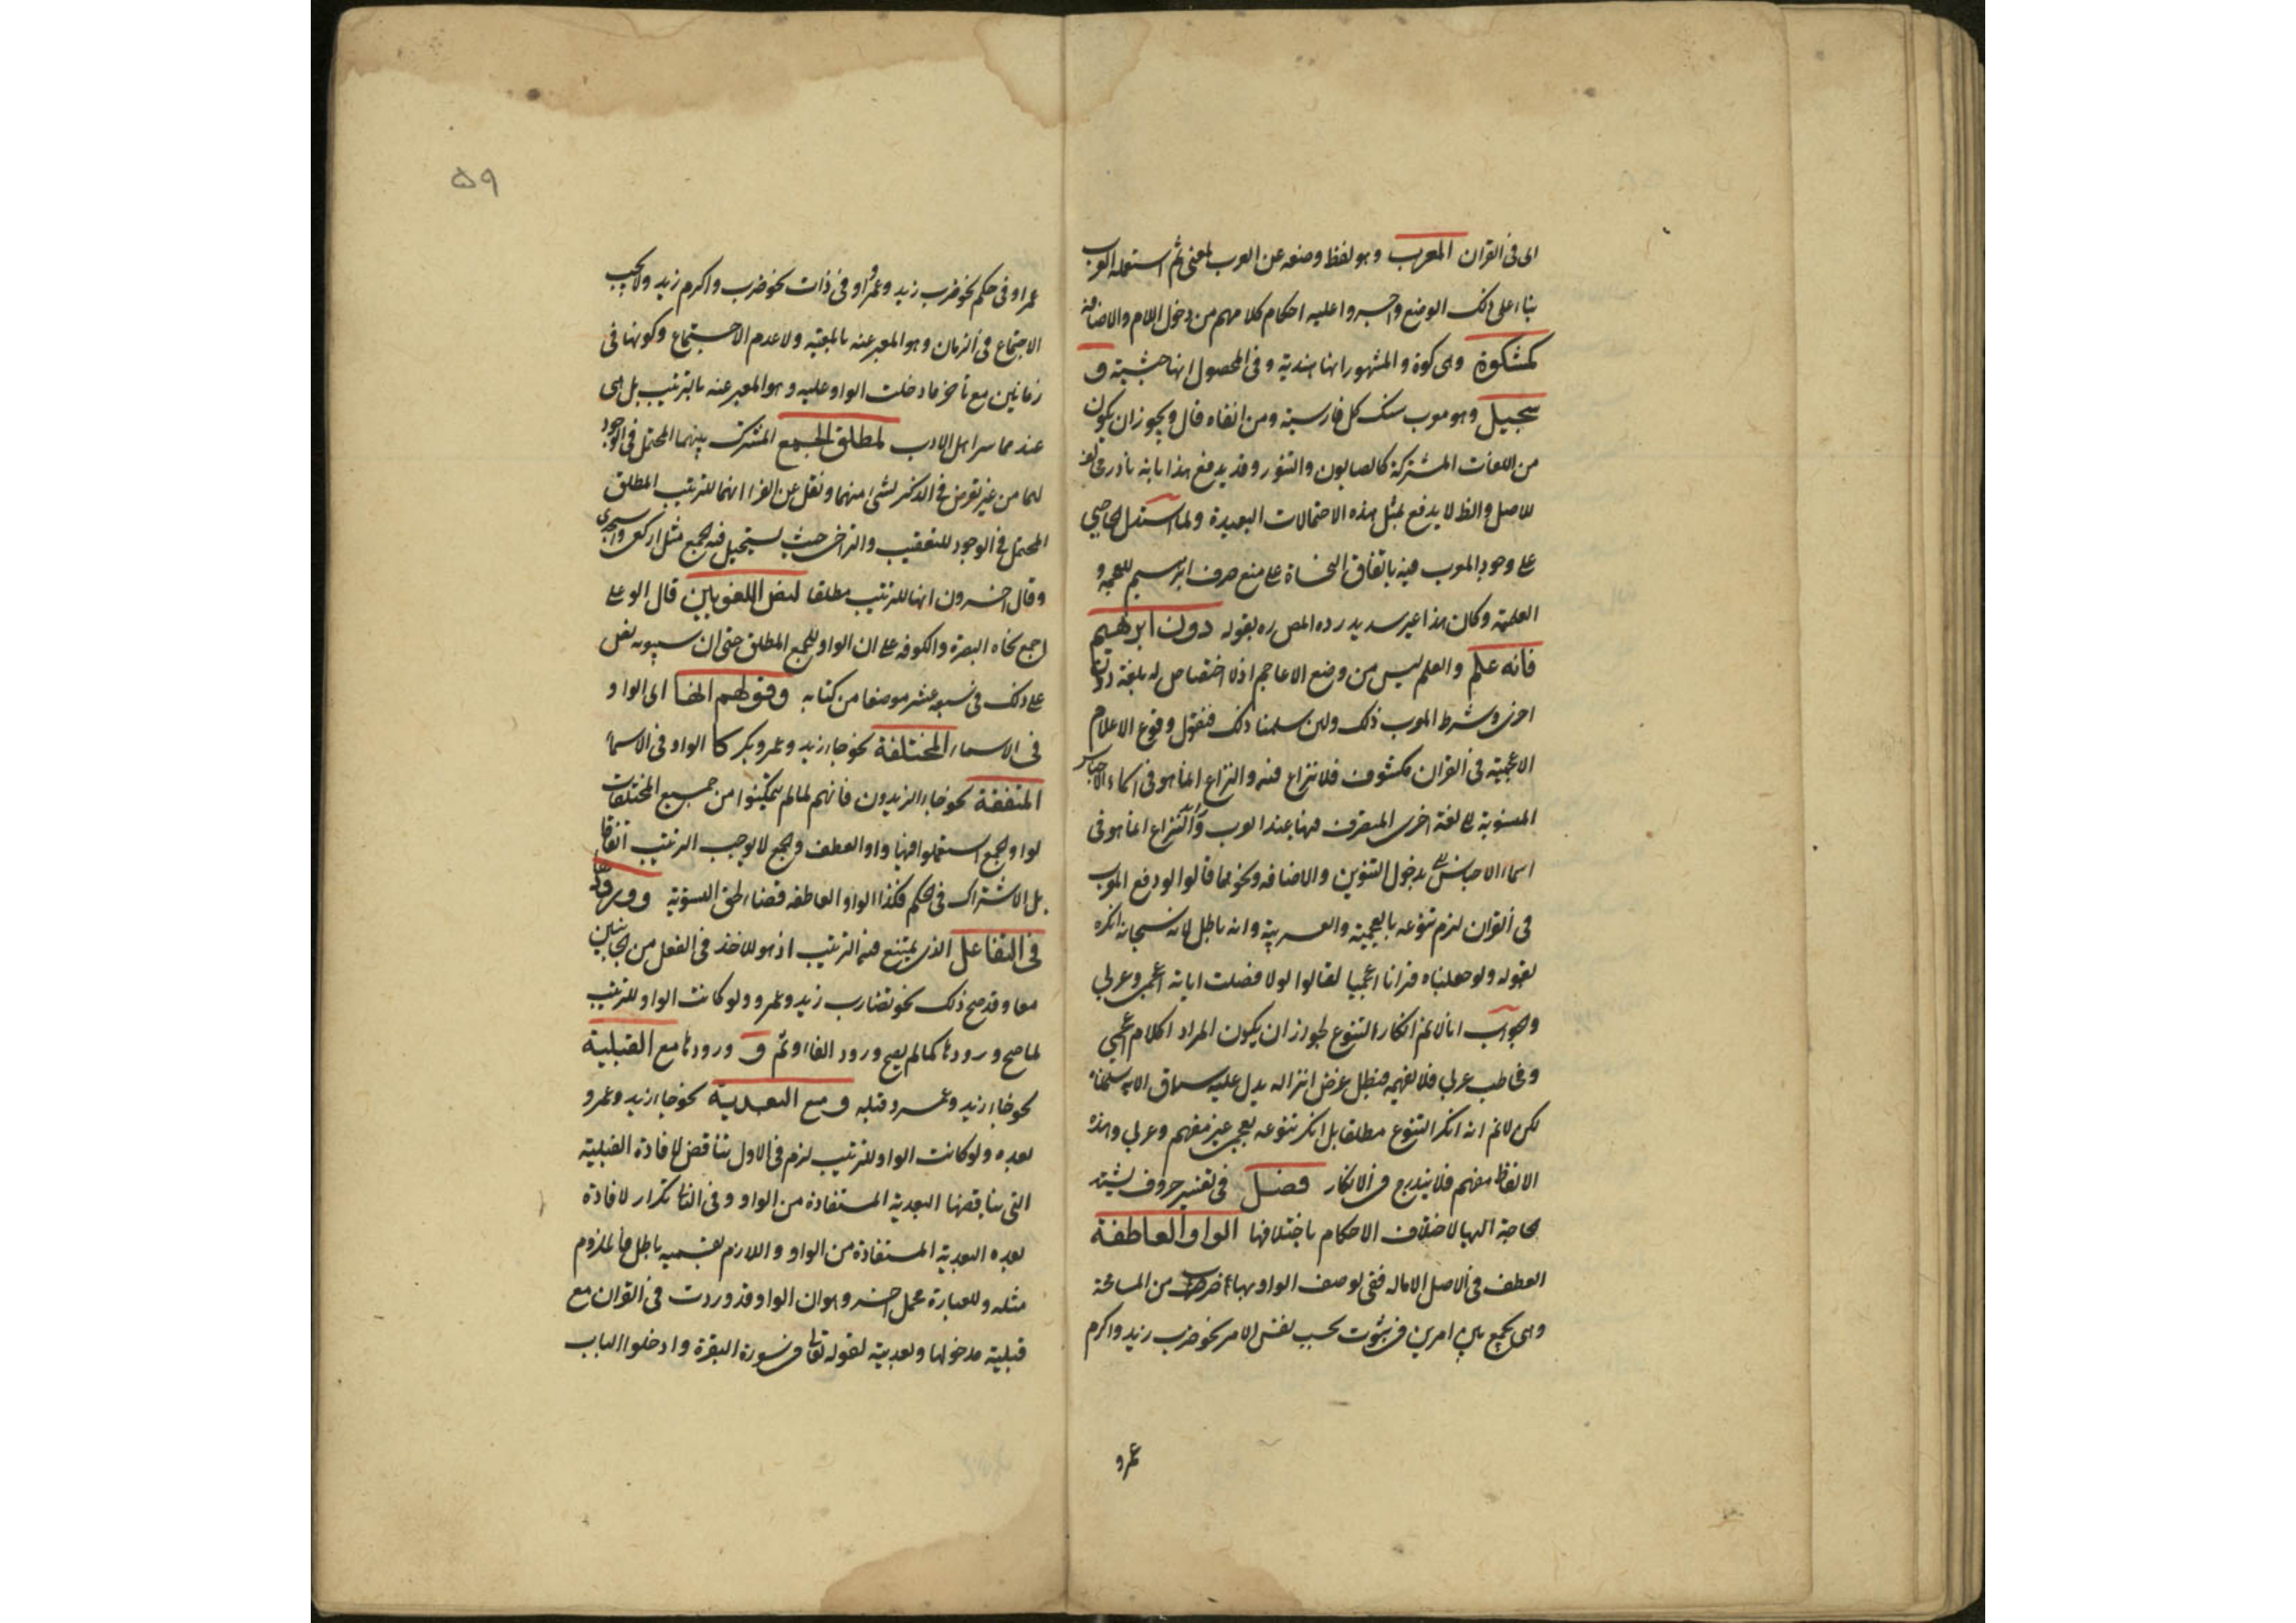 اى فى القران المعرب وهو لفظ وضعه غير العرب لمعنى ثم استعمله العرب
بناء على ذلك الوضع واجروا عليه احكام كلامهم من دخول اللام والاضافة
كمشكوة وهى كوة والمشهور انها هندية وفى المحصول انها حبشية و
سجيل وهو معرب سنك كل فارسية ومن انفاه قال ويجوز ان يكون
من اللغات المشتركة كالصابون والتنور وقد يدفع هذا بانه نادر
للاصل والظ لا يدفع بمثل هذه الاحتمالات البعيدة ولما استدل الحاجبى
على وجود المعرب فيه باتفاق النحاة على منع صرف ابرهيم للعجمه و
العلمية وكان هذا غير سديد رده المص ره بقوله دون ابرهيم
فانه علم والعلم ليس من وضع الاعاجم اذ لا اختصاص له بلغة دون
اخرى وشرط المعرب ذلك ولئن سلمنا ذلك فنقول وقوع الاعلام
الاعجمية فى القران مكشوف فلا نزاع فيه والنزاع انما هو فى اسماء الاجناس
المنسوبة الى لغة اخرى المتصرف فيها عند العرب والنزاع انما هو فى
اسماء الاجناس بدخول التنوين والاضافه ونحوهما قالوا لو وقع المعرب
فى القران لزم تنوعه بالعجمية والعربية وانه باطل لانه سبحانه انكره
بقوله ولو جعلناه قرانا اعجميا لقالوا لولا فصلت اياته اعجمى وعربى
والجواب انا لا نم انكار التنوع لجواز ان يكون المراد اكلام اعجمى
ومخاطب عربى فلا يفهمه فيبطل غرض انزاله يدل عليه سياق الاية سلمناه
لكن لا نم انه انكر التنوع مطلقا بل انكر تنوعه بعجمى غير مفهم وعربى وهذه
الالفاظ مفهم فلا يندرج فى الانكار فصل فى تفسير حروف يشتد
الحاجة اليها لاختلاف الاحكام باختلافها الواو العاطفة
العطف فى الاصل الامالة ففى توصف الواو بها ضرب من المسامحة
وهى تجمع بين امرين فى ثبوت بحسب نفس الامر نحو ضرب زيد واكرم
عمرو
٥٩
عمرا وفى حكم نحو ضرب زيد وعمرو او فى ذات نحو ضرب واكرم زيد ولا يجب
الاجتماع فى الزمان وهو المعبر عنه بالمعية ولا عدم الاجتماع وكونها فى
زمانين مع تأخر ما دخلت الواو عليه وهو المعبر عنه بالترتيب بل هى
عند جماهير اهل الادب لمطلق الجمع المشترك بينهما المحتمل فى الوجود
لهما من غير تعرض فى الذكر لشئ منهما ونقل عن الفراء انها للترتيب المطلق
المحتمل فى الوجود للتعقيب والتراخى حيث يستحيل فيه الجمع مثل اركعوا واسجدوا
وقال اخرون انها للترتيب مطلقا لنص اللغويين قال ابو على
اجمع نحاه البصرة والكوفه على ان الواو للجمع المطلق حتى ان سيبويه نص
على ذلك فى سبعة عشر موضعا من كتابه وقولهم انها اى الواو
فى الاسماء المختلفة نحو جاء زيد وعمرو وبكر كا الواو فى الاسماء
المتفقة نحو جاء الزيدون فانهم لما لم يتمكنوا من جمع المختلفات
بواو الجمع استعملوا فيها واو العطف والجمع لا يوجب الترتيب اتفاقا
بل الاشتراك فى الحكم فكذا الواو العاطفه قضاء لحق التسوية وورودها
فى التفاعل الذى يمتنع فيه الترتيب اذ هو للاخذ فى الفعل من الجانبين
معا وقد صح ذلك نحو تضارب زيد وعمرو ولو كانت الواو للترتيب
لما صح ورودها كما لم يصح ورود الفاء وثم و ورودها مع القبلية
نحو جاء زيد وعمرو قبله و مع البعدية نحو جاء زيد وعمرو
بعده ولو كانت الواو للترتيب لزم فى الاول تناقض لافادة القبلية
التى يناقضها البعدية المستفادة من الواو وفى الثانى تكرار لافادة
بعده البعدية المستفادة من الواو واللازم بقسميه باطل فالملزوم
مثله وللعبارة محمل اخر وهو ان الواو قد وردت فى القران مع
قبلية مدخولها وبعديته لقوله تعالى فى سورة البقرة وادخلوا الباب